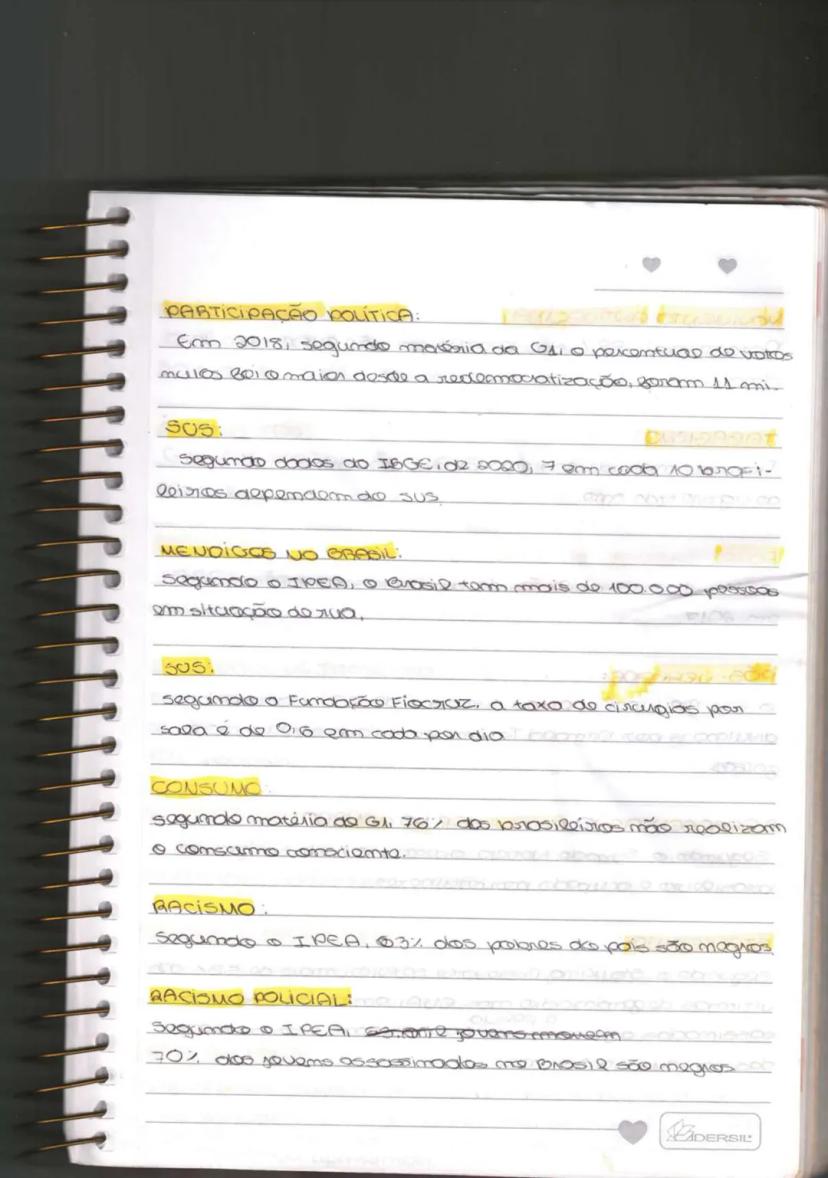 PARTICIPAÇÃO POLÍTICA:
Em 2018, segundo matéria da G1, o percentual de votos
nulos foi o maior desde a redemocratização, foram 11 mi.
SUS:
segundo dados do IBGE, de 2020, 7 em cada 10 brasi-
leiros dependem do SUS.
MENDIGOS NO BRASIL:
segundo o IPEA, o Brasil tem mais de 100.000 pessoas
em situação de rua.
SUS:
segundo a Fundação Fiocruz, a taxa de cirurgias por
sala é de 0,6 em cada por dia
CONSUMO:
segundo matéria do G1, 76% dos brasileiros não realizam
o consumo consciente.
RACISMO:
segundo o IPEA, 63% dos pobres do país são negros
RACISMO POLICIAL:
segundo o IPEA,
70% dos jovens assassinados no Brasil são negros
ADERSIL